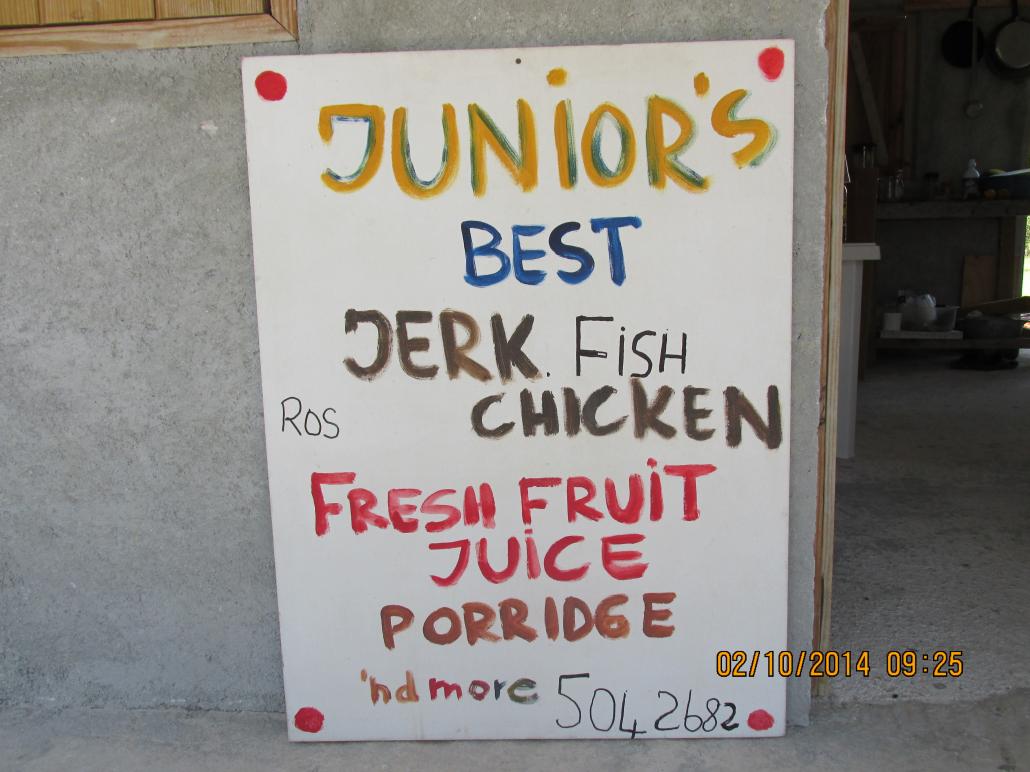 JUNiOR'S
BEST
JERK. FiSH
Ros CHICKEN
FRESH FRUiT
JUiCE
PORRIDGE
'nd more 5042682
02/10/2014 09:25